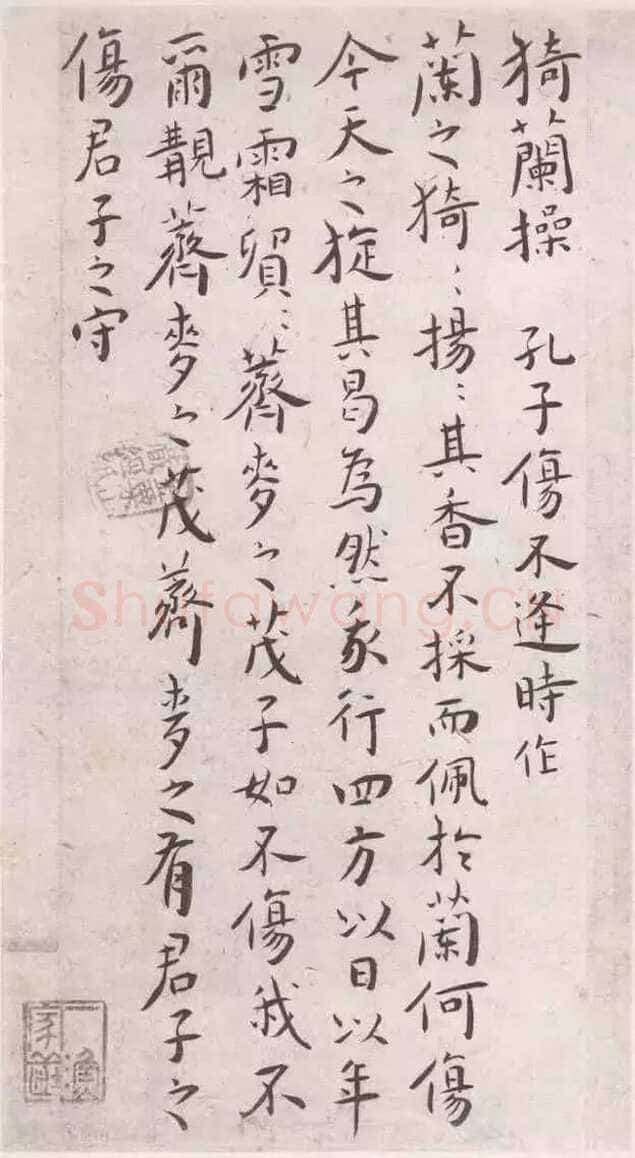 猗蘭操 孔子傷不逢時作
蘭之猗〻揚〻其香不採而佩於蘭何傷
今天之旋其曷為然我行四方以日以年
雪霜貿〻薺麥之茂子如不傷我不
爾覯薺麥之茂薺麥之有君子之
傷君子之守
Shufawang.cn